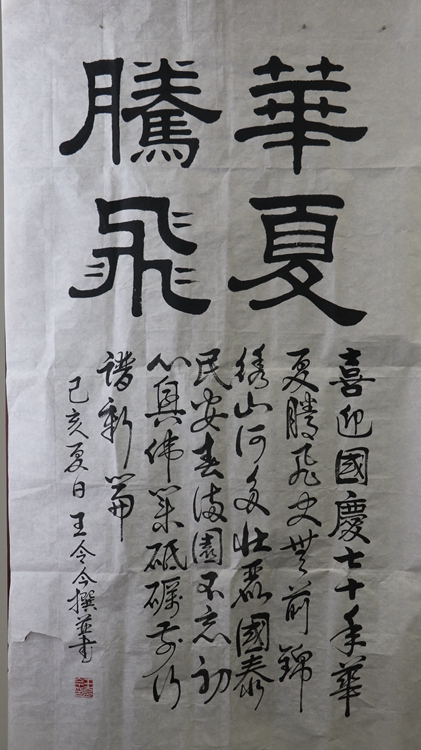 華夏
騰飛
喜迎國慶七十年華
夏騰飛史無前錦
綉山河多壯麗國泰
民安春滿園不忘初
心興偉業砥礪前行
譜新篇
己亥夏日王令今撰並書